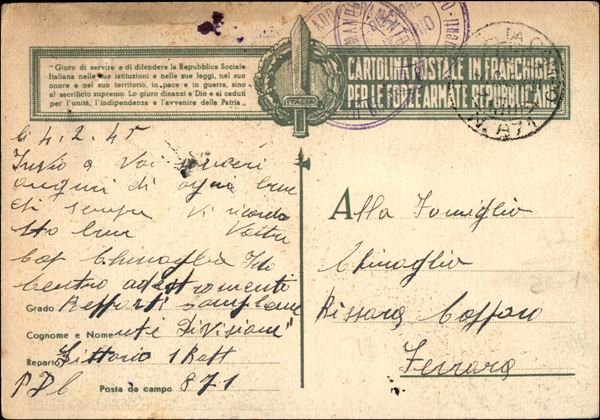 " Giuro di servire e di difendere la Repubblica Sociale
Italiana nelle sue istituzioni e nelle sue leggi, nel suo
onore e nel suo territorio, in pace e in guerra, sino
al sacrificio supremo. Lo giuro dinanzi a Dio e ai caduti
per l'unità, l'indipendenza e l'avvenire della Patria „
ITALIA
CARTOLINA POSTALE IN FRANCHIGIA
PER LE FORZE ARMATE REPUBBLICANE
N. 871
4.2.45
Invio a Voi sinceri
auguri di ogni bene
di sempre Vi ricorda
sto bene Vostro
Chinaglia Ido
Centro addestramento
Grado Reparti complem
Cognome e Nome nti Divisione"
Reparto Littorio 1 Batt
Posta da campo 871
Alla Famiglia
Chinaglia
Ferrara